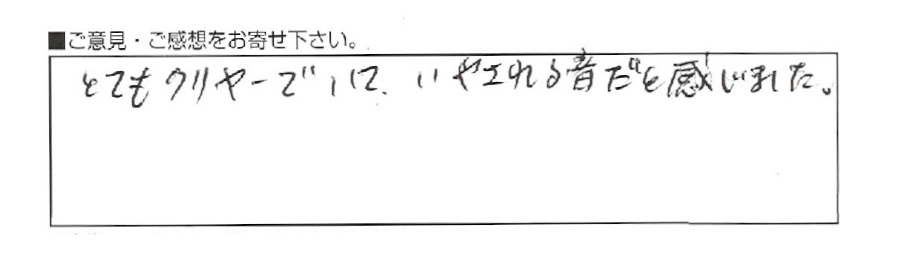 ■ご意見・ご感想をお寄せ下さい。
とてもクリヤーでいて、いやされる音だと感じました。